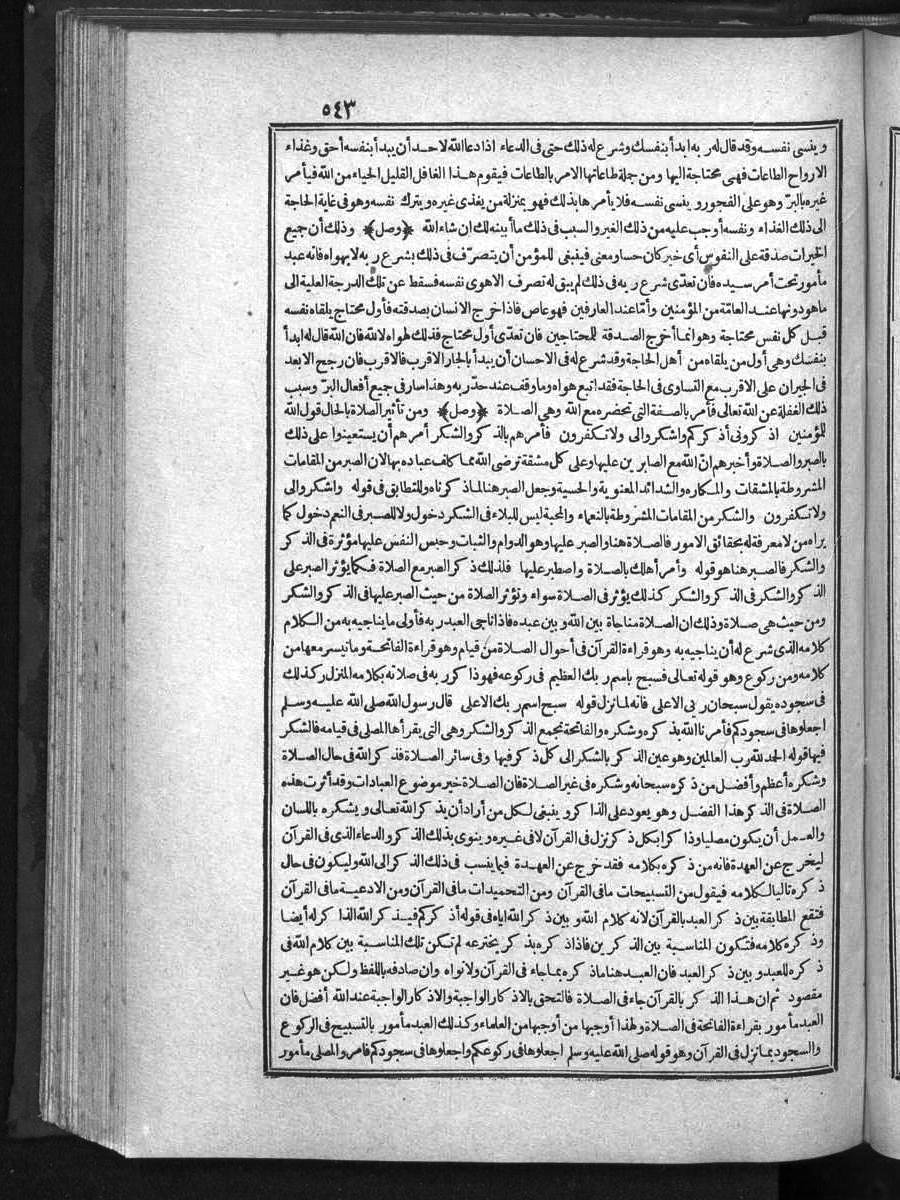 ٥٤٣
وينسى نفسه وقد قال له ربه ابدأ بنفسك وشرع له ذلك حتى فى الدعاء اذا دعا الله لاحد أن يبدأ بنفسه أحق وغذاء
الارواح الطاعات فهى محتاجة اليها ومن جملة طاعاتها الامر بالطاعات فيقوم هذا الغافل القليل الحياء من الله فيأمر
غيره بالبرّ وهو على الفجور وينسى نفسه فلا يأمرها بذلك فهو بمنزلة من يغذى غيره ويترك نفسه وهو فى غاية الحاجة
الى ذلك الغذاء ونفسه أوجب عليه من ذلك الغير والسبب فى ذلك ما أبينه لك ان شاء الله ﴿وصل﴾ وذلك أن جميع
الخيرات صدقة على النفوس أى خير كان حسا ومعنى فينبغى للمؤمن أن يتصرّف فى ذلك بشرع ربه لا بهواه فانه عبد
مأمور تحت أمر سيده فان تعدّى شرع ربه فى ذلك لم يبق له تصرف الاهوى نفسه فسقط عن تلك الدرجة العلية الى
ما هو دونها عند العامّة من المؤمنين وأمّا عند العارفين فهو عاص فاذا خرج الانسان بصدقته فأول محتاج يلقاه نفسه
قبل كل نفس محتاجة وهو انما أخرج الصدقة للمحتاجين فان تعدّى أول محتاج فذلك لهواه لالله فان الله قال له ابدأ
بنفسك وهى أول من يلقاه من أهل الحاجة وقد شرع له فى الاحسان أن يبدأ بالجار الاقرب فالاقرب فان رجح الابعد
فى الجيران على الاقرب مع التساوى فى الحاجة فقد اتبع هواه وما وقف عند حدّ ربه وهذا سار فى جميع أفعال البرّ وسبب
ذلك الغفلة عن الله تعالى فأمر بالصفة التى تحضره مع الله وهى الصلاة ﴿وصل﴾ ومن تأثير الصلاة بالحال قول الله
للمؤمنين اذكرونى أذكركم واشكروا لى ولا تكفرون فأمرهم بالذكر والشكر أمرهم أن يستعينوا على ذلك
بالصبر والصلاة وأخبرهم انّ الله مع الصابرين عليها وعلى كل مشقة ترضى الله مما كلف عباده بها لان الصبر من المقامات
المشروطة بالمشقات والمكاره والشدائد المعنوية والحسية وجعل الصبر هنا لماذكرناه وللتطابق فى قوله واشكروا لى
ولا تكفرون والشكر من المقامات المشروطة بالنعماء والمحبة ليس للبلاء فى الشكر دخول ولا للصبر فى النعم دخول كما
يراه من لا معرفة له بحقائق الامور فالصلاة هنا والصبر عليها وهو الدوام والثبات وحبس النفس عليها مؤثرة فى الذكر
والشكر فالصبر هنا هو قوله وأمر أهلك بالصلاة واصطبر عليها فلذلك ذكر الصبر مع الصلاة فكما يؤثر الصبر على
الذكر والشكر فى الذكر والشكر كذلك يؤثر فى الصلاة سواء وتؤثر الصلاة من حيث الصبر عليها فى الذكر والشكر
ومن حيث هى صلاة وذلك ان الصلاة مناجاة بين الله وبين عبده فاذا ناجى العبد ربه فأولى ما يناجيه به من الكلام
كلامه الذى شرع له أن يناجيه به وهو قراءة القرآن فى أحوال الصلاة من قيام وهو قراءة الفاتحة وما تيسر معها من
كلامه ومن ركوع وهو قوله تعالى فسبح باسم ربك العظيم فى ركوعه فهو ذاكر ربه فى صلاته بكلامه المنزل وكذلك
فى سجوده يقول سبحان ربى الاعلى فانه لما نزل قوله سبح اسم ربك الاعلى قال رسول الله صلى الله عليه وسلم
اجعلوها فى سجودكم فأمرنا الله بذكره وشكره والفاتحة تجمع الذكر والشكر وهى التى يقرأها المصلى فى قيامه فالشكر
فيها قوله الحمد لله رب العالمين وهو عين الذكر بالشكر الى كل ذكر فيها وفى سائر الصلاة فذكر الله فى حال الصلاة
وشكره أعظم وأفضل من ذكره سبحانه وشكره فى غير الصلاة فان الصلاة خير موضوع العبادات وقد أثرت هذه
الصلاة فى الذكر هذا الفضل وهو يعود على الذاكر وينبغى لكل من أراد أن يذكر الله تعالى ويشكره باللسان
والعمل أن يكون مصليا وذاكرا بكل ذكر نزل فى القرآن لا فى غيره وينوى بذلك الذكر والدعاء الذى فى القرآن
ليخرج عن العهدة فانه من ذكره بكلامه فقد خرج عن العهدة فيما ينسب فى ذلك الذكر الى الله وليكون فى حال
ذكره تاليا لكلامه فيقول من التسبيحات ما فى القرآن ومن التحميدات ما فى القرآن ومن الادعية ما فى القرآن
فتقع المطابقة بين ذكر العبد بالقرآن لانه كلام الله وبين ذكر الله اياه فى قوله أذكركم فيذكر الله الذاكر له أيضا
وذكره كلامه فتكون المناسبة بين الذكرين فاذا ذكره بذكر يخترعه لم تكن تلك المناسبة بين كلام الله فى
ذكره للعبد وبين ذكر العبد فان العبد هنا ما ذكره بما جاء فى القرآن ولا نواه وان صادفه باللفظ ولكن هو غير
مقصود ثم ان هذا الذكر بالقرآن جاء فى الصلاة فالتحق بالاذكار الواجبة والاذكار الواجبة عند الله أفضل فان
العبد مأمور بقراءة الفاتحة فى الصلاة ولهذا أوجبها من أوجبها من العلماء وكذلك العبد مأمور بالتسبيح فى الركوع
والسجود بما نزل فى القرآن وهو قوله صلى الله عليه وسلم اجعلوها فى ركوعكم واجعلوها فى سجودكم فامر والمصلى مأمور